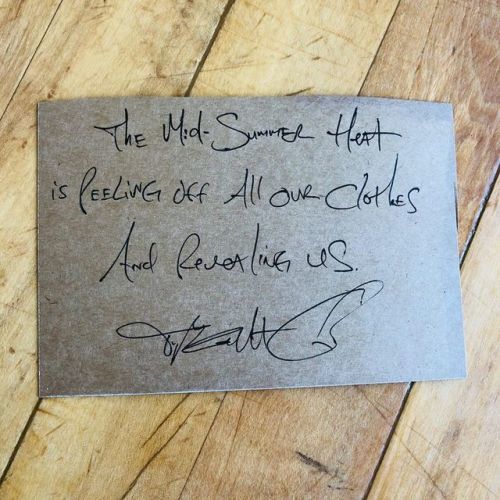 The Mid-Summer Heat
is Peeling off All our Clothes
And Revealing us.